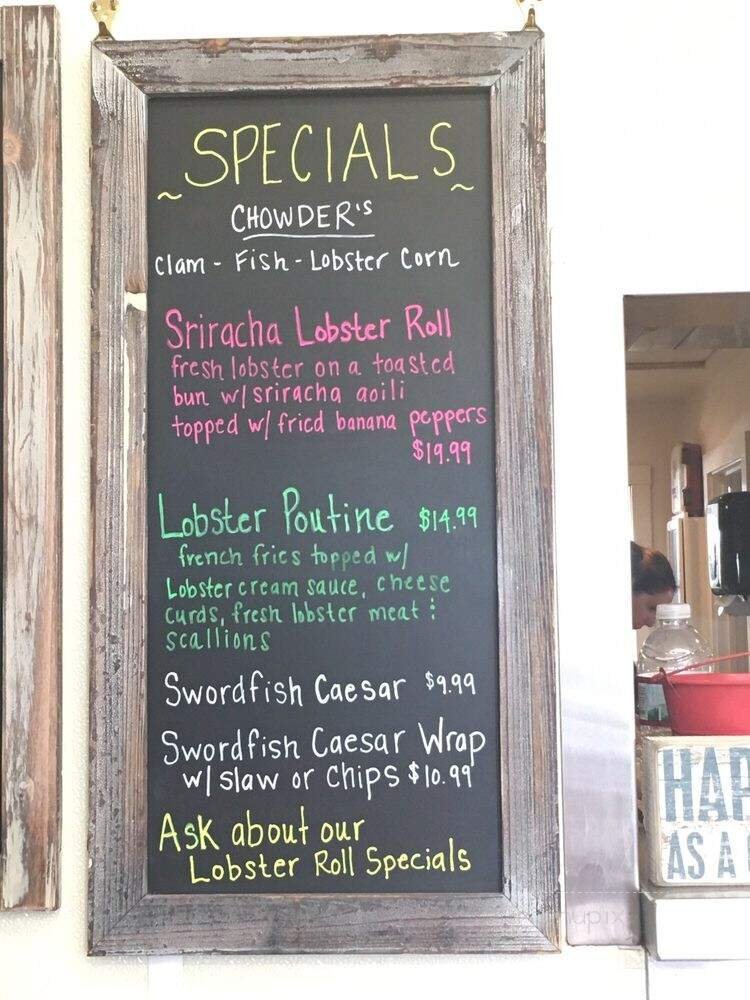 ~ SPECIALS ~
CHOWDER'S
Clam - Fish - Lobster Corn
Sriracha Lobster Roll
fresh lobster on a toasted
bun w/ sriracha aoili
topped w/ fried banana peppers
$19.99
Lobster Poutine $14.99
french fries topped w/
Lobster cream sauce, cheese
curds, fresh lobster meat &
scallions
Swordfish Caesar $9.99
Swordfish Caesar Wrap
w/ slaw or chips $10.99
Ask about our
Lobster Roll Specials
HAP
AS A